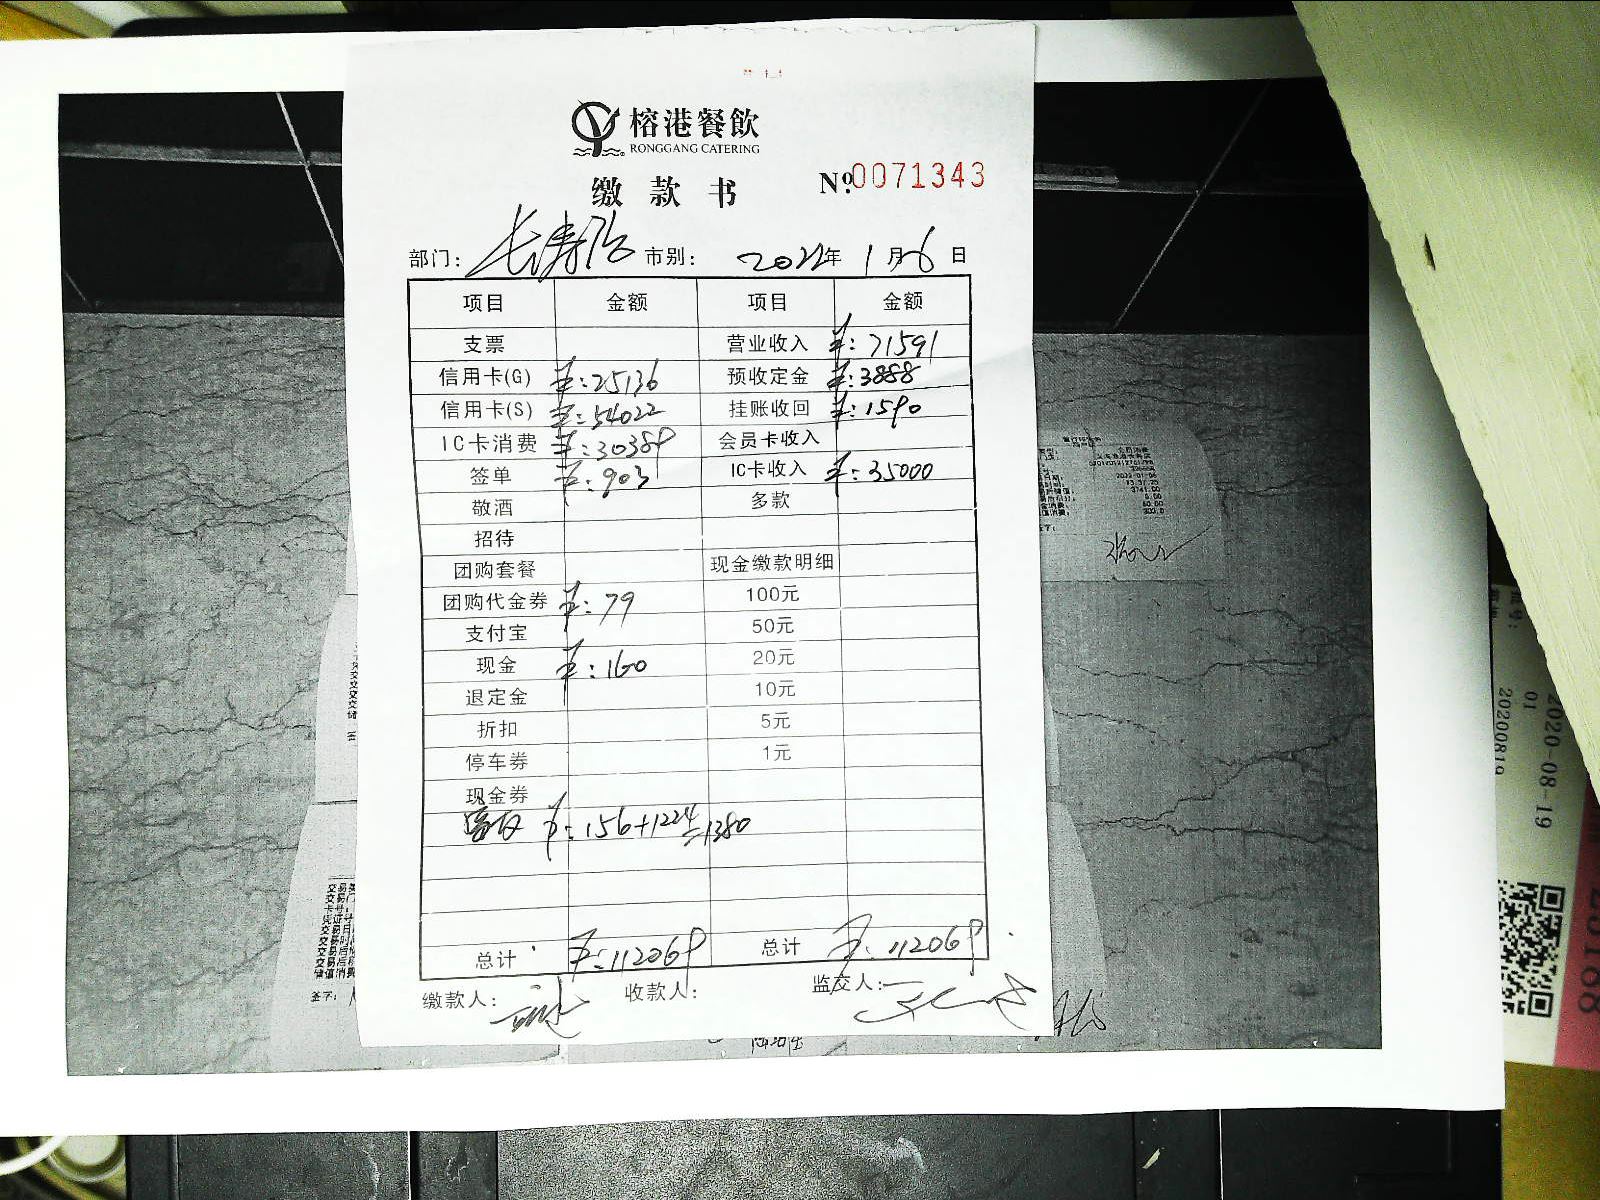 榕港餐飲
RONGGANG CATERING
缴款书 №.0071343
部门: 长寿路 市别: 2022年 1月6日
项目 金额 项目 金额
支票 营业收入 ¥:71591
信用卡(G) ¥:25136 预收定金 ¥:3888
信用卡(S) ¥:54022 挂账收回 ¥:1590
IC卡消费 ¥:30389 会员卡收入
签单 ¥:903 IC卡收入 ¥:35000
敬酒 多款
招待
团购套餐 现金缴款明细
团购代金券 ¥:79 100元
支付宝 50元
现金 ¥:160 20元
退定金 10元
折扣 5元
停车券 1元
现金券
¥:156+1224=1380
总计 ¥:112069 总计 ¥:112069
缴款人: 收款人: 监交人:
签字:
2020-08-19
01
20200819